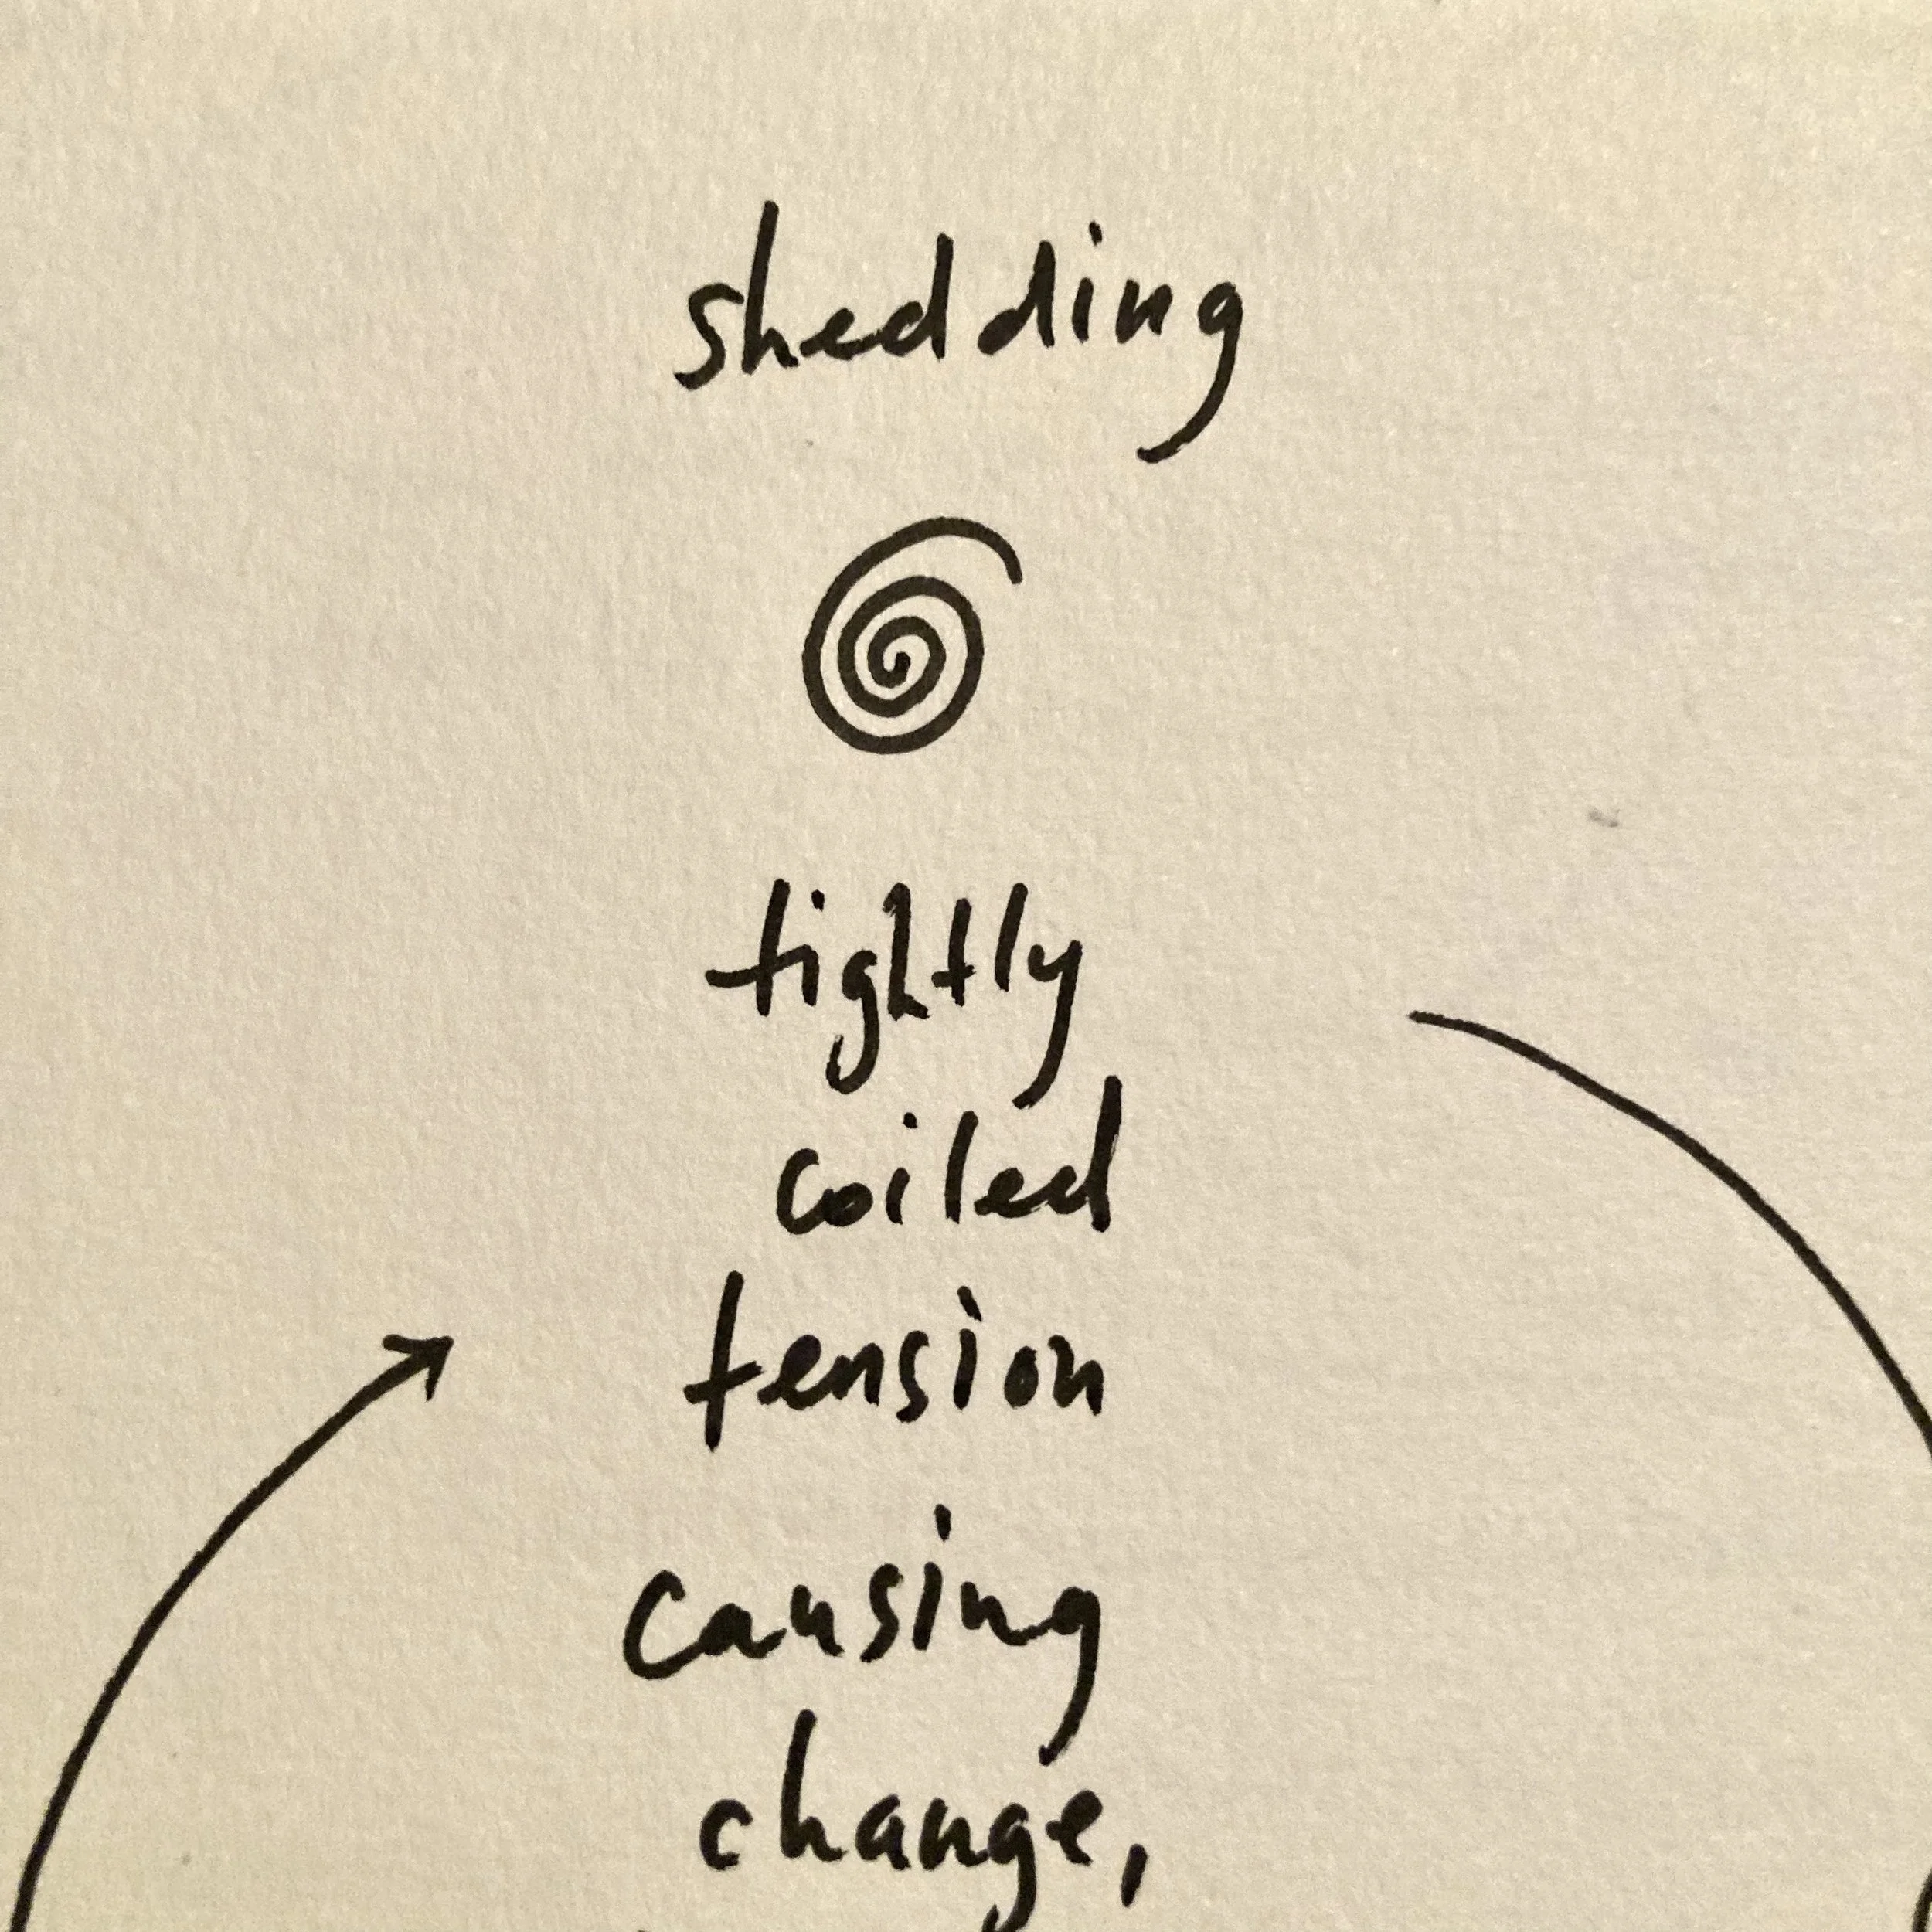 shedding
tightly
coiled
tension
causing
change,